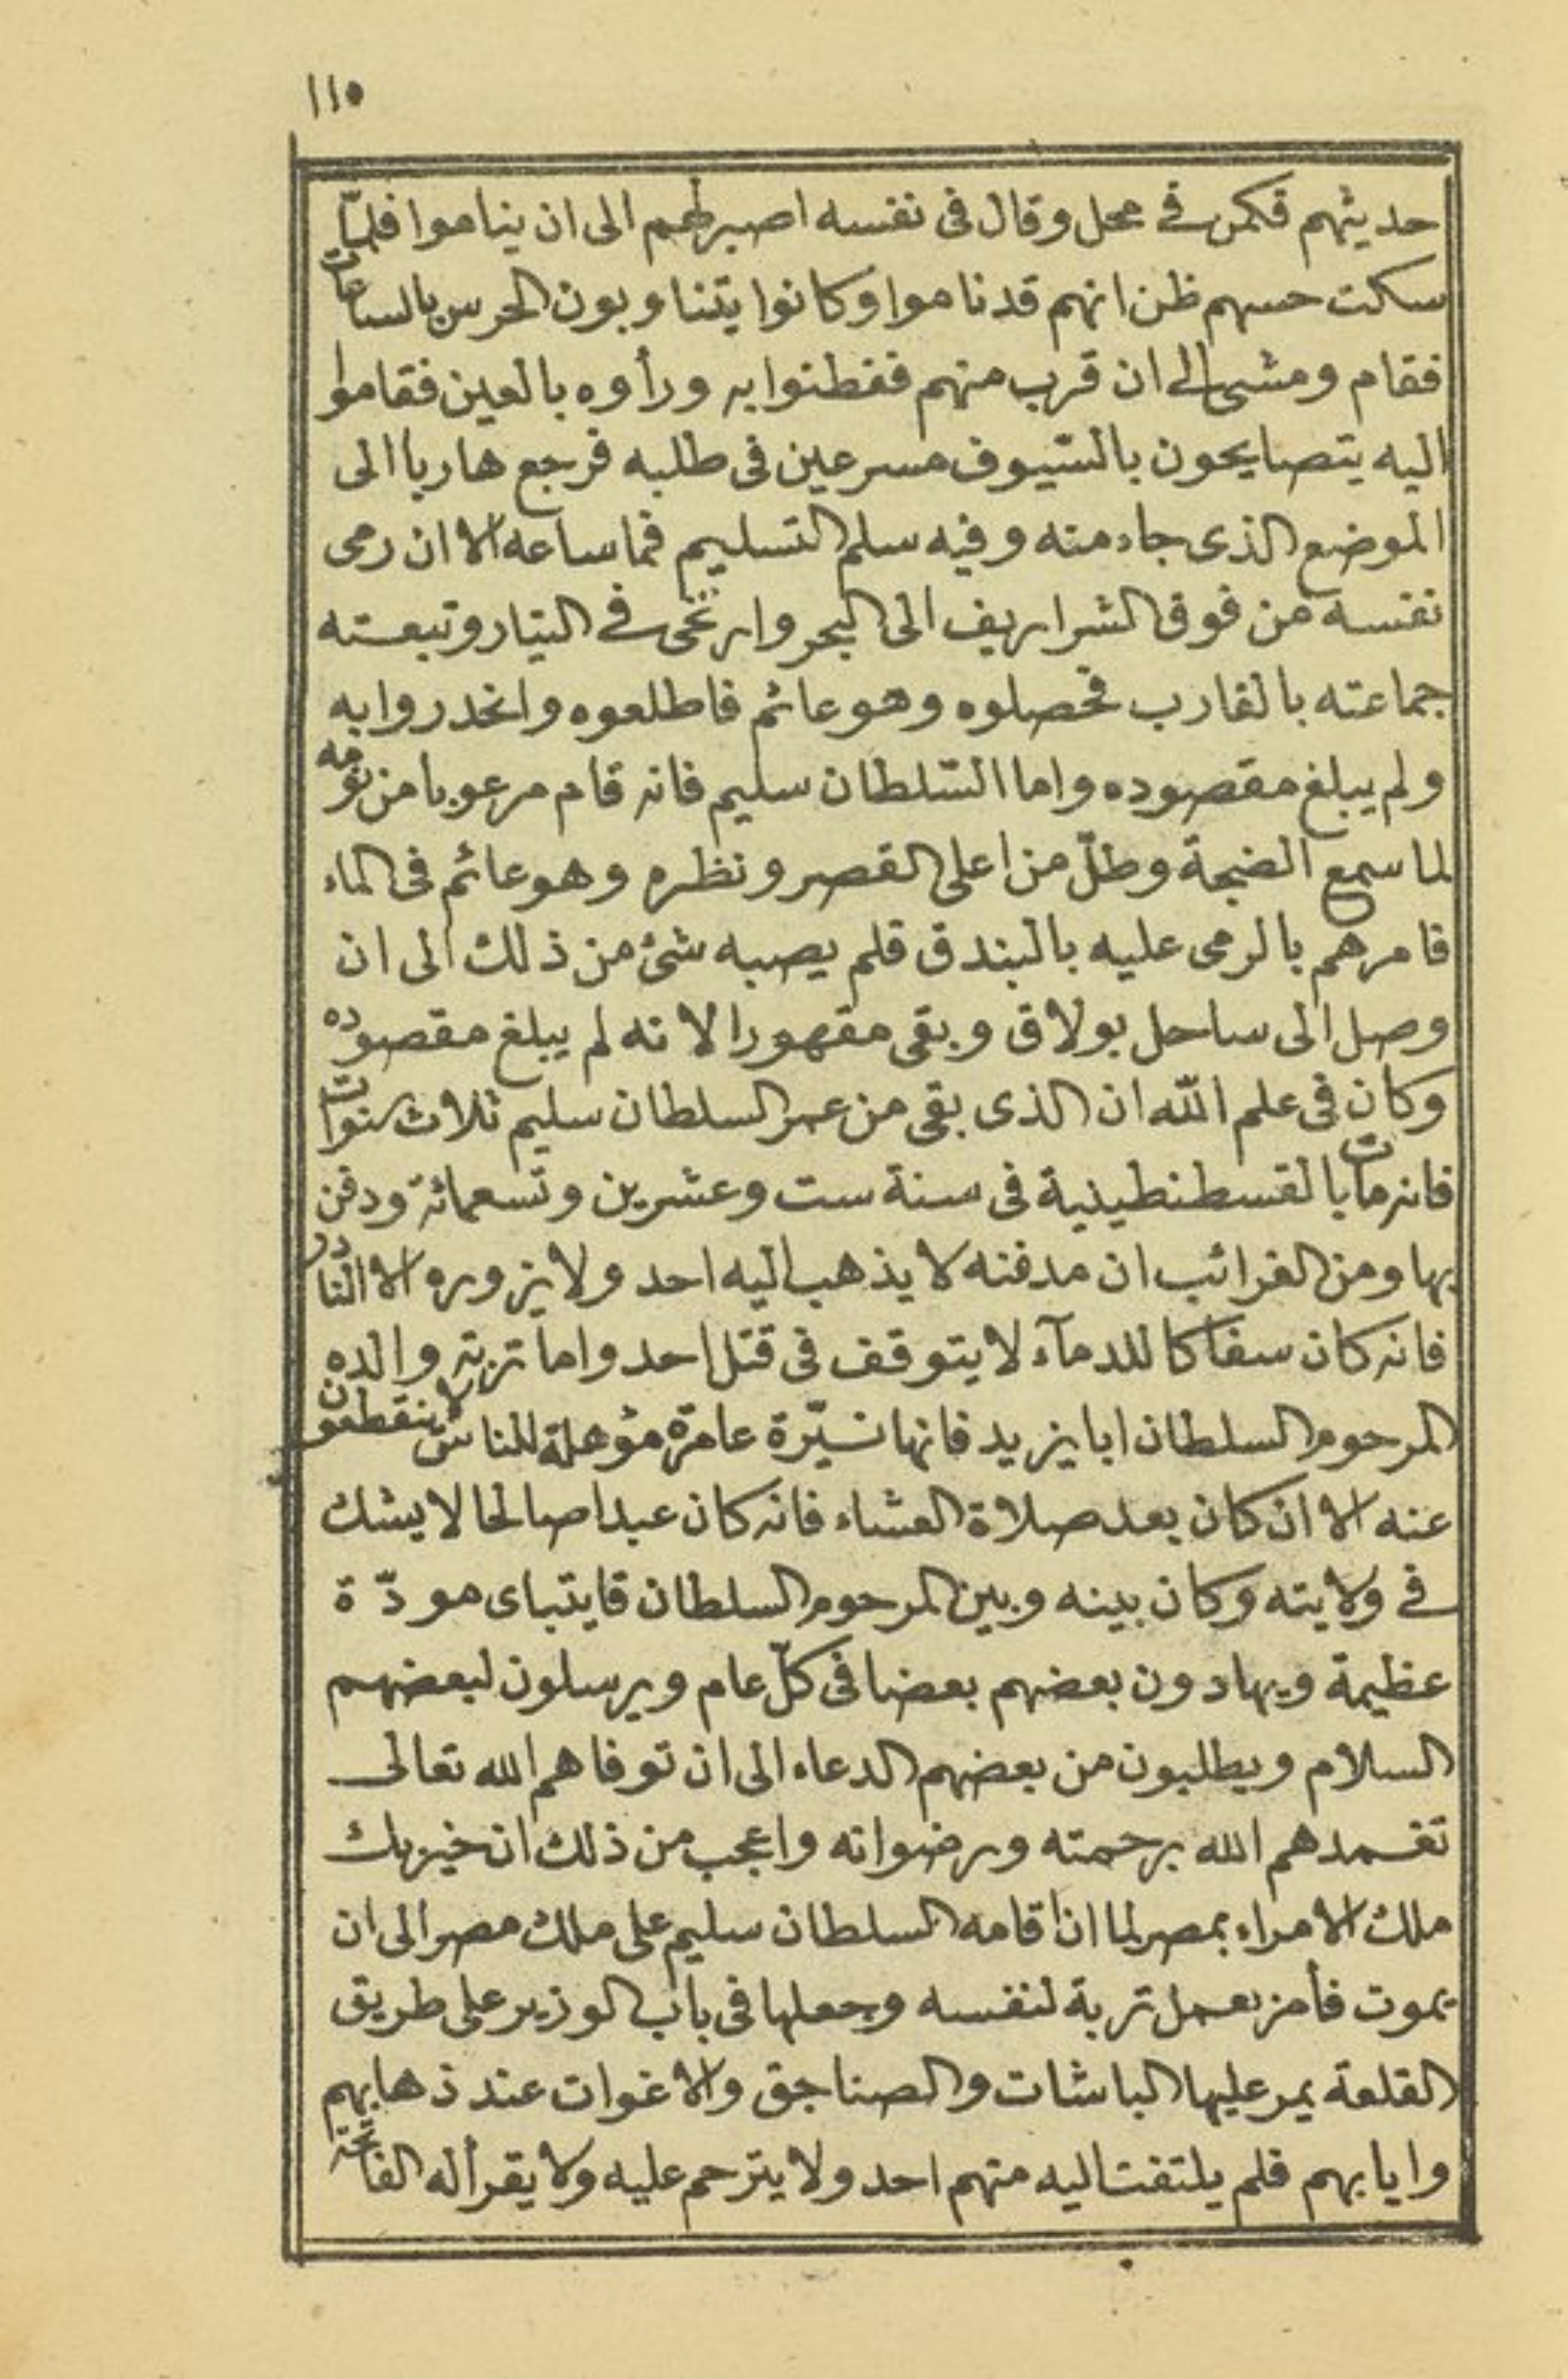 ١١٥
حديثهم فكمن في محل وقال فى نفسه اصبر لهم الى ان يناموا فلمّا
سكت حسهم ظن انهم قد ناموا وكانوا يتناوبون الحرس بالساعات
فقام ومشى الى ان قرب منهم ففطنوا به ورأوه بالعين فقاموا
اليه يتصايحون بالسّيوف مسرعين فى طلبه فرجع هاربا الى
الموضع الذى جاء منه وفيه سلم التسليم فما ساعه الا ان رمى
نفسه من فوق الشراريف الى البحر وارتخى في التيار وتبعته
جماعته بالقارب فحصلوه وهو عائم فاطلعوه وانحدروا به
ولم يبلغ مقصوده واما السّلطان سليم فانه قام مرعوبا من نومه
لما سمع الضجة وطلّ من اعلى القصر ونظره وهو عائم فى الماء
فامرهم بالرمى عليه بالبندق فلم يصبه شئ من ذلك الى ان
وصل الى ساحل بولاق وبقى مقهورا لانه لم يبلغ مقصوده
وكان فى علم الله ان الذى بقى من عمر السلطان سليم ثلاث سنوات
فانه مات بالقسطنطينية فى سنة ست وعشرين وتسعمائة ودفن
بها ومن الغرائب ان مدفنه لا يذهب اليه احد ولا يزوره الا النّادر
فانه كان سفاكا للدمآء لا يتوقف فى قتل احد واما تربة والده
المرحوم السلطان ابا يزيد فانها نيّرة عامرة مؤهلة للناس لا ينقطعون
عنه الا ان كان بعد صلاة العشاء فانه كان عبدا صالحا لا يشك
في ولايته وكان بينه وبين المرحوم السلطان قايتباى مودّة
عظيمة ويهادون بعضهم بعضا فى كلّ عام ويرسلون لبعضهم
السلام ويطلبون من بعضهم الدعاء الى ان توفاهم الله تعالى
تغمدهم الله برحمته ورضوانه واعجب من ذلك ان خير بك
ملك الامراء بمصر لما ان اقامه السلطان سليم على ملك مصر الى ان
يموت فأمر بعمل تربة لنفسه وجعلها فى باب الوزير على طريق
القلعة يمر عليها الباشات والصناجق والاغوات عند ذهابهم
وايابهم فلم يلتفت اليه منهم احد ولا يترحم عليه ولا يقرأ له الفاتحة